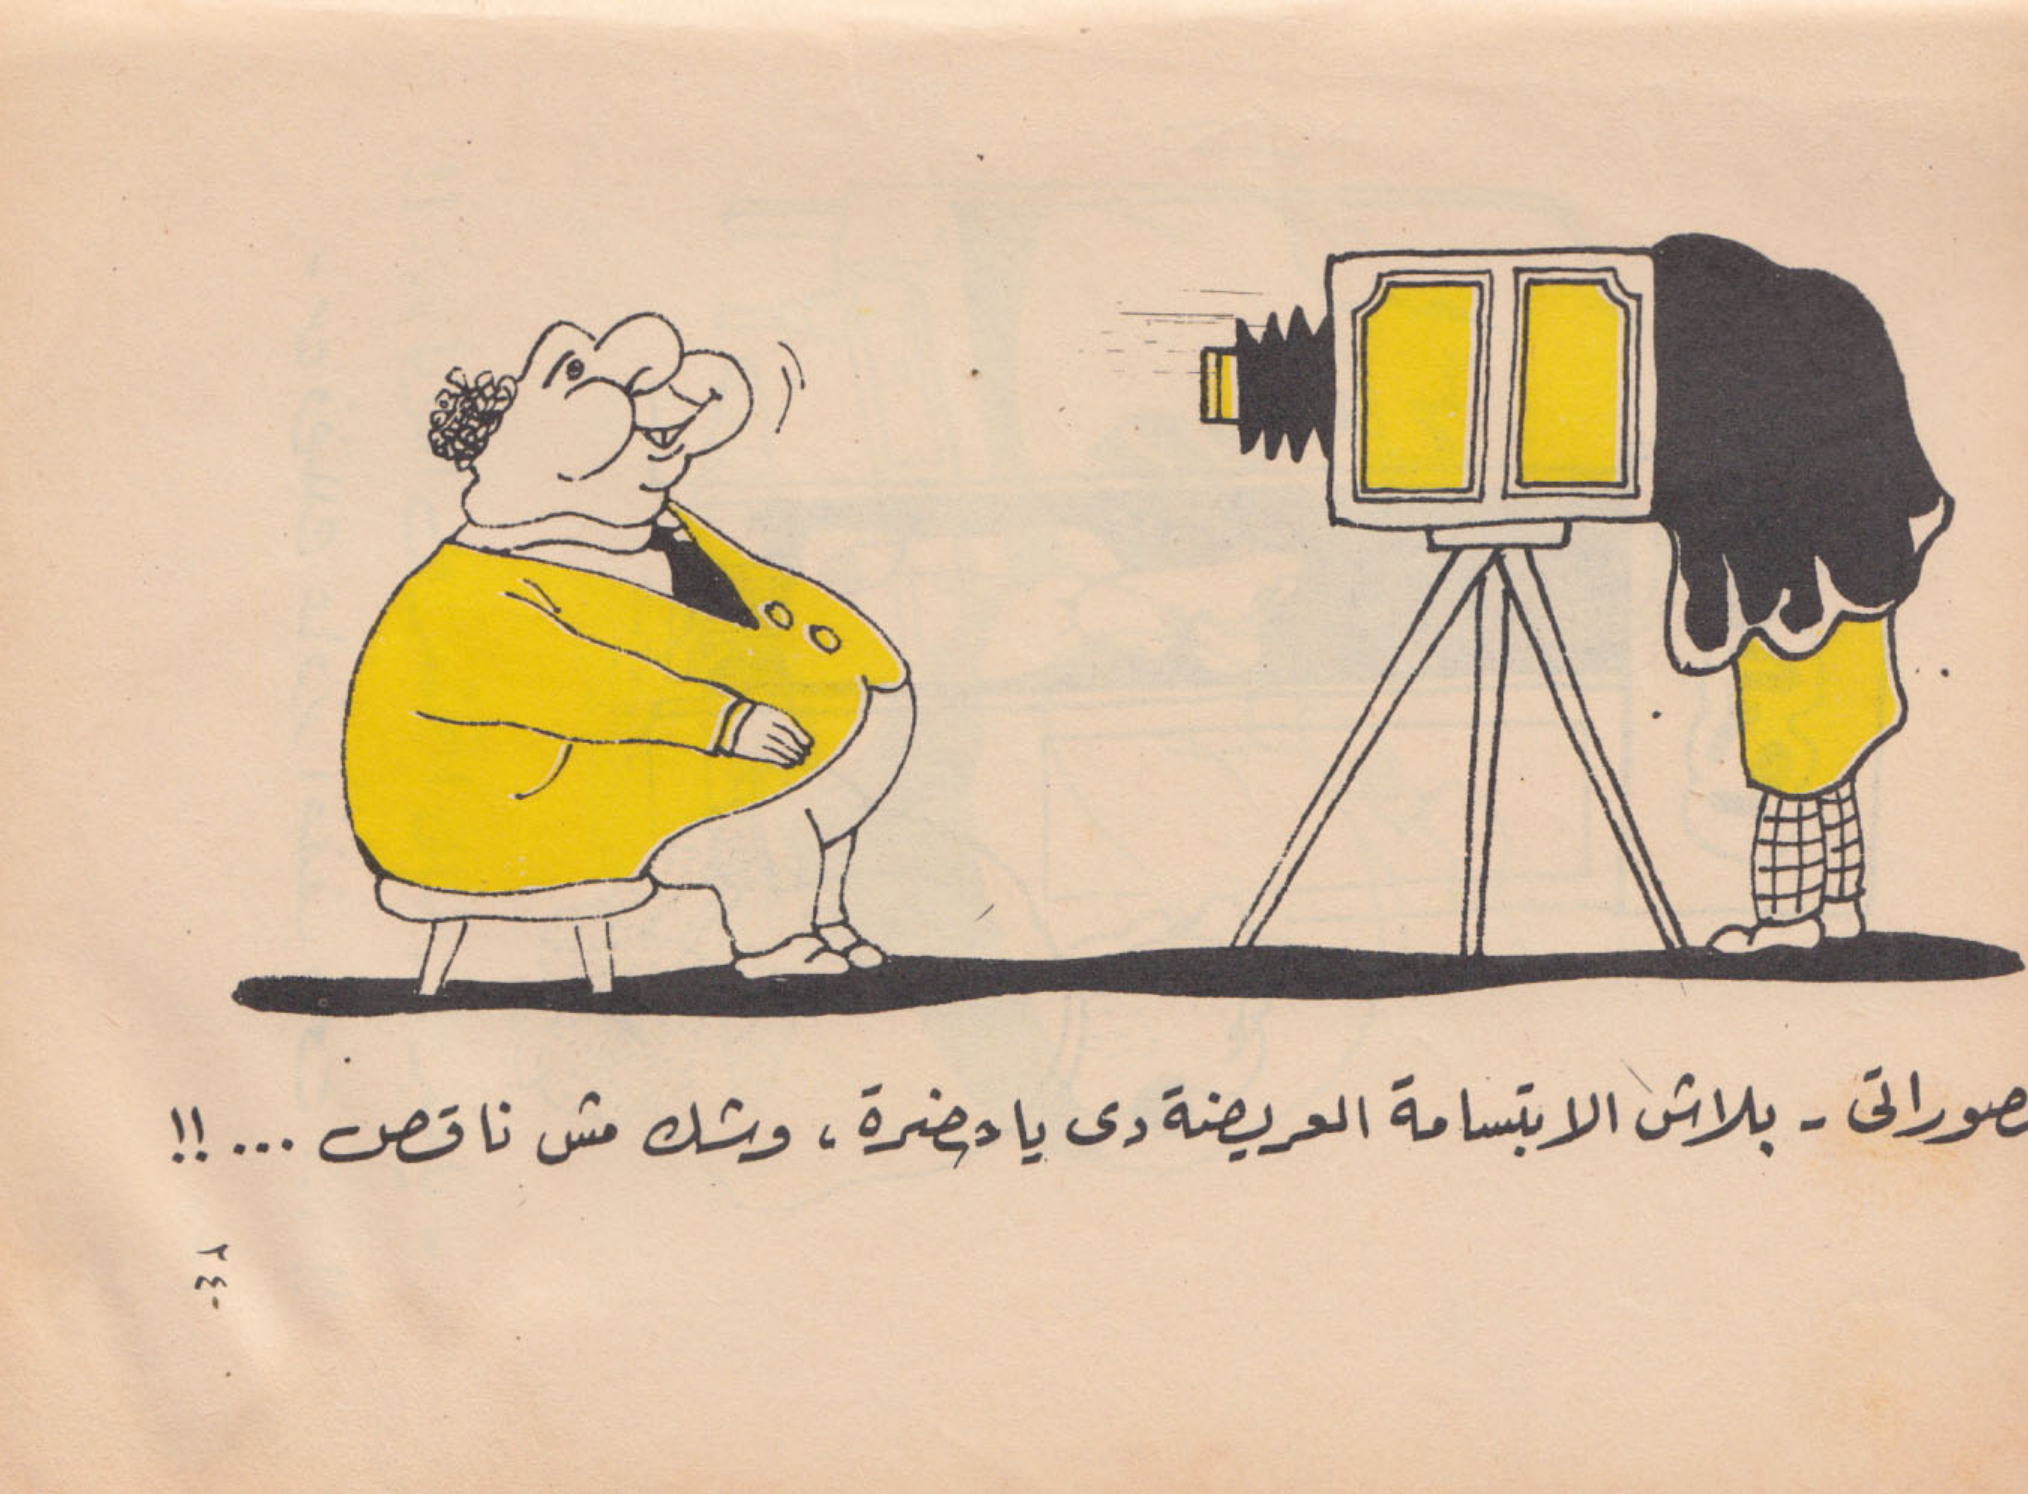 صوراتى - بلاش الابتسامة العريضة دى يا حضرة ، وشك مش ناقص ... !!